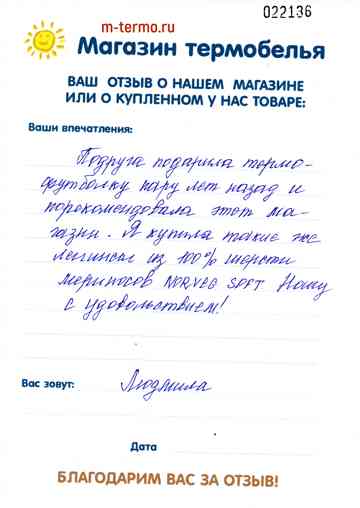 022136
m-termo.ru
Магазин термобелья
ВАШ ОТЗЫВ О НАШЕМ МАГАЗИНЕ
ИЛИ О КУПЛЕННОМ У НАС ТОВАРЕ:
Ваши впечатления:
Подруга подарила термо-
футболку пару лет назад и
порекомендовала этот ма-
газин. Я купила такие же
леггинсы из 100% шерсти
мериносов NORVEG SOFT Ношу
с удовольствием!
Вас зовут: Людмила
Дата
БЛАГОДАРИМ ВАС ЗА ОТЗЫВ!